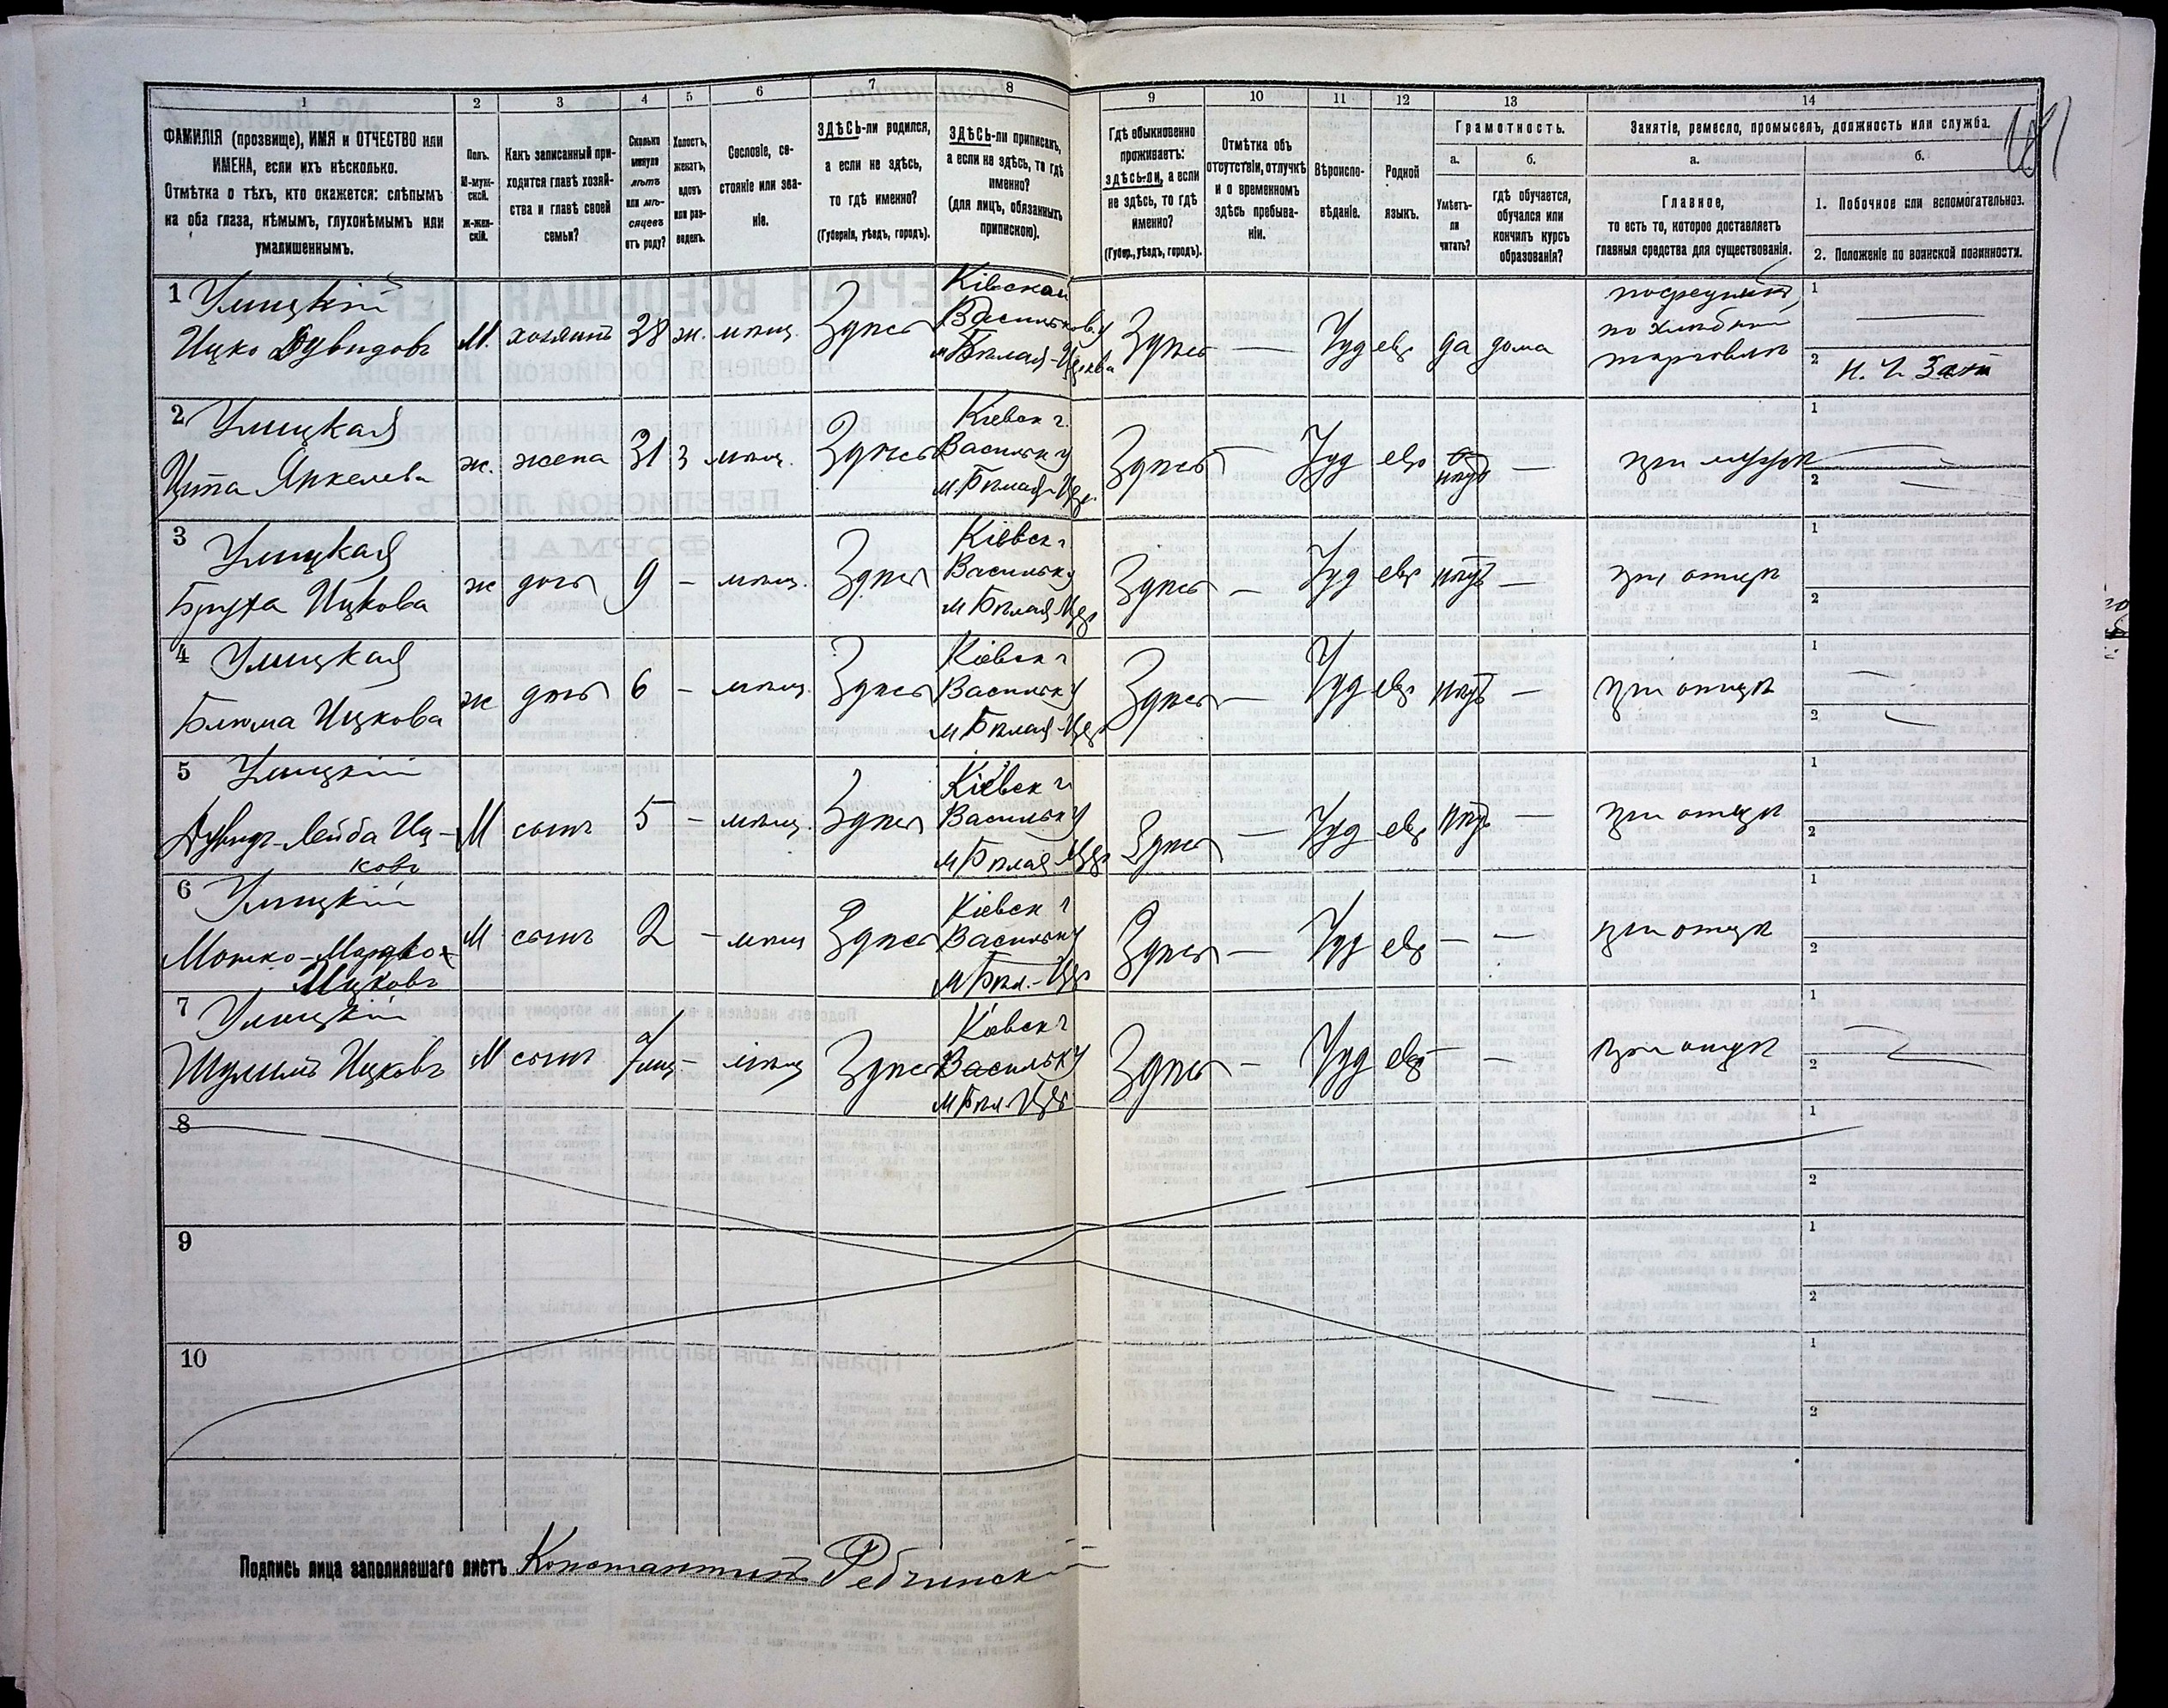 1 2 3 4 5 6 7 8 9 10 11 12 13 14
ФАМИЛІЯ (прозвище), ИМЯ и ОТЧЕСТВО или
ИМЕНА, если ихъ нѣсколько.
Отмѣтка о тѣхъ, кто окажется: слѣпымъ
на оба глаза, нѣмымъ, глухонѣмымъ или
умалишеннымъ.
Полъ.
М-муж-
ской.
Ж-жен-
скій.
Какъ записанный при-
ходится главѣ хозяй-
ства и главѣ своей
семьи?
Сколько
минуло
лѣтъ
или мѣ-
сяцевъ
отъ роду?
Холостъ,
женатъ,
вдовъ
или раз-
веденъ.
Сословіе, со-
стояніе или зва-
ніе.
ЗДѢСЬ-ли родился,
а если не здѣсь,
то гдѣ именно?
(Губернія, уѣздъ, городъ).
ЗДѢСЬ-ли приписанъ,
а если не здѣсь, то гдѣ
именно?
(для лицъ, обязанныхъ
припискою).
Гдѣ обыкновенно
проживаетъ:
здѣсь-ли, а если
не здѣсь, то гдѣ
именно?
(Губер., уѣздъ, городъ).
Отмѣтка объ
отсутствіи, отлучкѣ
и о временномъ
здѣсь пребыва-
ніи.
Вѣроиспо-
вѣданіе.
Родной
языкъ.
Грамотность.
а.
Умѣетъ-
ли
читать?
б.
гдѣ обучается,
обучался или
кончилъ курсъ
образованія?
Занятіе, ремесло, промыселъ, должность или служба.
а.
Главное,
то есть то, которое доставляетъ
главныя средства для существованія.
б.
1. Побочное или вспомогательное.
2. Положеніе по воинской повинности.
1 Улицкій
Ицко Дувидовъ
М. хозяинъ 38 ж. мѣщ. Здѣсь
Кіевской
Васильков. у
м. Бѣлая-Церква
Здѣсь — Іуд евр да дома
посредникъ
по хлѣбной
торговлѣ
1 —
2
2 Улицкая
Янкелева
ж. жена 31 З мѣщ. Здѣсь
Кіевск г.
Васильк у
м. Бѣлая-Цер.
Здѣсь — Іуд евр нѣтъ — при мужѣ
1
2
3 Улицкая
Бруха Ицкова
ж дочь 9 - мѣщ. Здѣсь
Кіевск г
Васильк у
м Бѣлая Цер
Здѣсь — Іуд евр нѣтъ — при отцѣ
1
2
4 Улицкая
Блюма Ицкова
ж дочь 6 - мѣщ. Здѣсь
Кіевск г
Васильк у
м Бѣлая Цер
Здѣсь — Іуд евр нѣтъ — при отцѣ
1
2
5 Улицкій
Дувидъ-Лейба Иц-
ковъ
М сынъ 5 - мѣщ. Здѣсь
Кіевск г
Васильк у
м Бѣлая Цер
Здѣсь — Іуд евр нѣтъ — при отцѣ
1
2
6 Улицкій
Мошко-Мордко
Ицковъ
М сынъ 2 - мѣщ Здѣсь
Кіевск г
Васильк у
м Бѣл.-Цер
Здѣсь — Іуд евр — — при отцѣ
1
2
7 Улицкій
Шулимъ Ицковъ
М сынъ 7 мѣщ Здѣсь
Кіевск г
Васильк у
м Бѣл. Цер
Здѣсь — Іуд евр — — при отцѣ
1
2
8
1
2
9
1
2
10
1
2
Подпись лица заполнявшаго листъ Константинъ